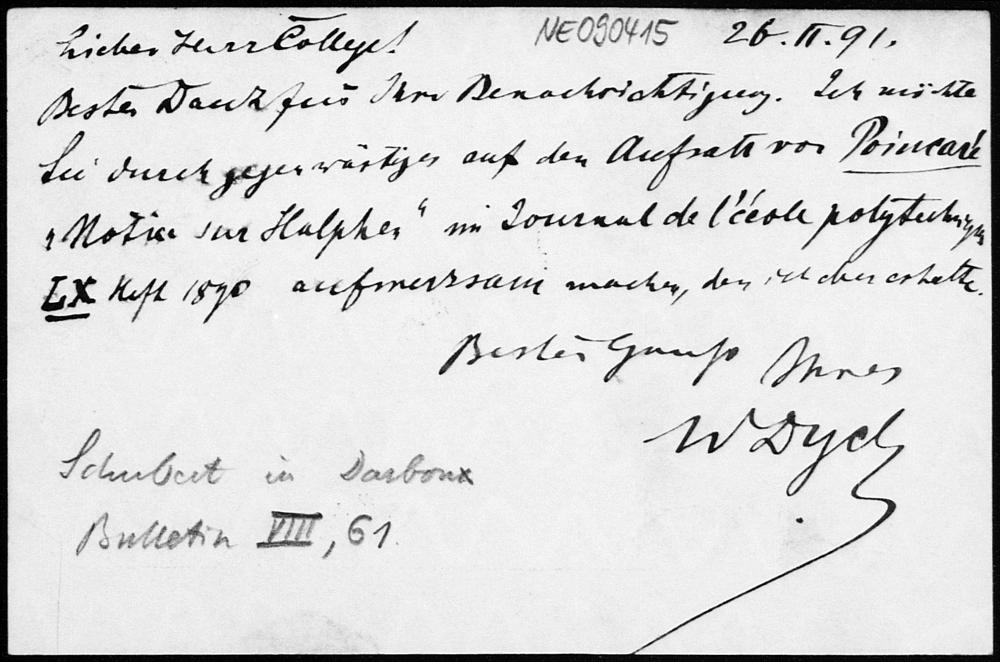 NE090415
26.II.91.
Lieber Herr College!
Besten Dank für Ihre Benachrichtigung. Ich möchte
Sie durch gegenwärtiges auf den Aufsatz von Poincaré
„Notice sur Halphen“ im Journal de l'école polytechnique
LX Heft 1890 aufmerksam machen, den ich eben erhalte.
Besten Gruß Ihres
W Dyck
Schubert in Darboux
Bulletin VIII, 61.